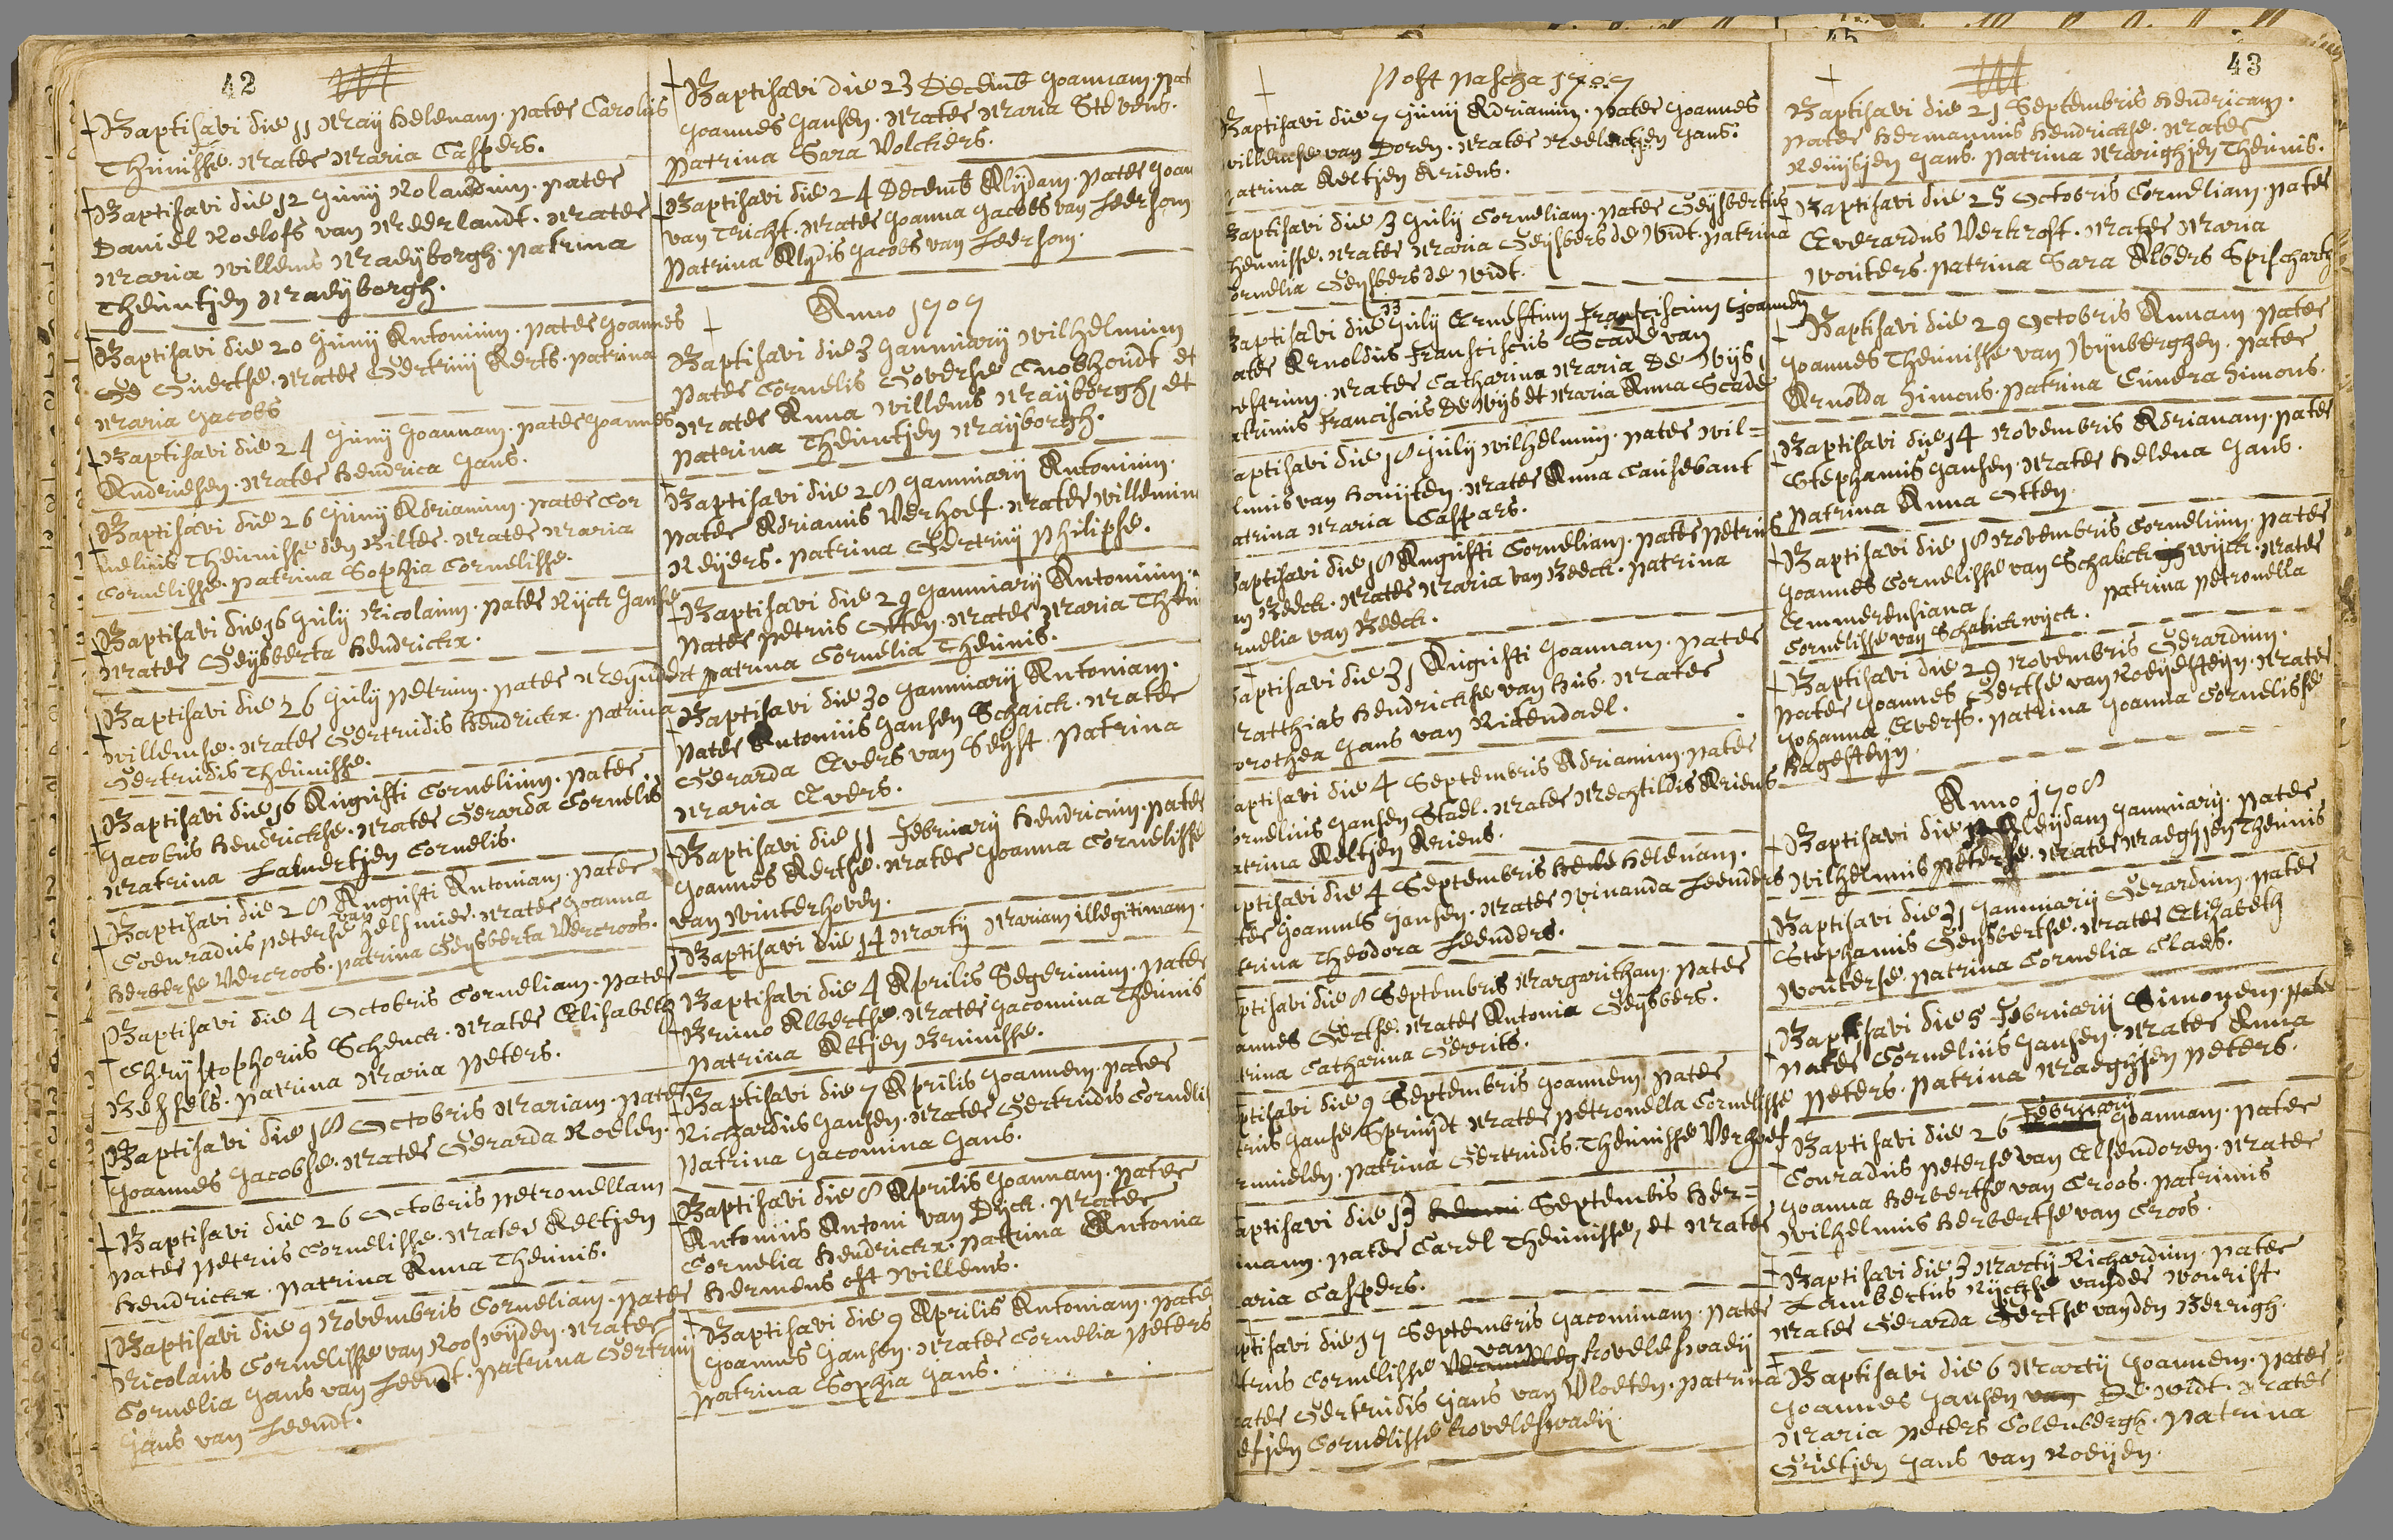 42
Baptisavi die 11 Maij Helenam. pater Carolus
Theunisse. Mater Maria Caspers.
Baptisavi die 12 Junij Rolandum. pater
Daniel Roelofs van Meerlandt. Mater
Maria Willems Maeijborgh. patrina
Theuntjen Maeijborgh.
Baptisavi die 20 Junij Antonium. pater Joannes
Ge Geertse. Mater Gertruij Aerts. patrina
Maria Jacobs
Baptisavi die 24 Junij Joannam. pater Joannes
Andriesen. Mater Hendrica Jans.
Baptisavi die 26 Junij Adrianum. pater Cor
nelius Theunisse den Bilter. Mater Maria
Cornelisse. patrina Sophia Cornelisse.
Baptisavi die 16 Julij Nicolaum. pater Rijck Janse
Mater Geijsberta Hendrickx.
Baptisavi die 26 Julij Petrum. pater Meijndert
Willemse. Mater Gertrudis Hendrickx. patrina
Gertrudis Theunisse.
Baptisavi die 16 Augusti Cornelium. pater
Jacobus Hendrickse. Mater Gerarda Cornelis
Matrina Lambertjen Cornelis.
Baptisavi die 28 Augusti Antoniam. pater
Coenradus Peterse van Helsmide. Mater Joanna
Herberse Vercroos. patrina Geijsberta Vercroos.
Baptisavi die 4 Octobris Corneliam. pater
Chrijstophorus Schenck. Mater Elisabeth
Bessels. patrina Maria Peters.
Baptisavi die 18 Octobris Mariam. pater
Joannes Jacobse. Mater Gerarda Roelen.
Baptisavi die 26 Octobris Petronellam
pater Petrus Cornelisse. Mater Aeltjen
Hendrickx. patrina Anna Theunis.
Baptisavi die 9 Novembris Corneliam. pater
Nicolaus Cornelisse van Rooswijden. Mater
Cornelia Jans van Leendt. patrina Gertruij
Jans van Leendt.
Baptisavi die 23 Decemb Joannam. pat
Joannes Jansen. Mater Maria Stevens.
patrina Sara Volckers.
Baptisavi die 24 Decemb Alijdam. pater Joan
van Tricht. Mater Joanna Jacobs van Leersom
patrina Alijdis Jacobs van Leersom.
Anno 1707
Baptisavi die 3 Januuarij Wilhelmum
pater Cornelis Goverse Cnobhoudt et
Mater Anna Willems Maeijborgh, et
patrina Theuntjen Maeijborgh.
Baptisavi die 28 Januuarij Antonium.
pater Adrianus Verhoef. Mater Willemin
Reijers. patrina Gertruij Philipse.
Baptisavi die 29 Januuarij Antonium.
pater Petrus Otten. Mater Maria Theu
patrina Cornelia Theunis.
Baptisavi die 30 Januuarij Antoniam.
pater Antonius Jansen Schaick. Mater
Gerarda Evers van Seijst. patrina
Maria Evers.
Baptisavi die 11 Februarij Hendricum. pater
Joannes Aertse. Mater Joanna Cornelisse
van Winterhoven.
Baptisavi die 14 Martij Mariam illegitimam.
Baptisavi die 4 Aprilis Segerinum. pater
Bruno Albertse. Mater Jacomina Theunis
patrina Altjen Brunisse.
Baptisavi die 7 Aprilis Joannem. pater
Richardus Jansen. Mater Gertrudis Corneli
patrina Jacomina Jans.
Baptisavi die 8 Aprilis Joannam. pater
Antonius Antoni van Dijck. Mater
Cornelia Hendrickx. patrina Antonia
Hermens oft Willems.
Baptisavi die 9 Aprilis Antoniam. pater
Joannes Jansen. Mater Cornelia Peters
patrina Sophia Jans.
45
Post pascha 1707
Baptisavi die 7 Junij Adrianum. pater Joannes
Willemse van Doren. Mater Neelentjen Jans.
atrina Aeltjen Ariens.
Baptisavi die 3 Julij Corneliam. pater Geijsbertus
heunisse. Mater Maria Geijsbers de Widt. patrina
ornelia Geijsbers de Widt.
Baptisavi die 13 Julij Ernestum Franciscum Joannem
ater Arnoldus Fransciscus Scade van
estrum. Mater Catharina Maria De Wijs,
atrinus Franciscus De Wijs et Maria Anna Scade
aptisavi die 18 Julij Wilhelmum. pater Wil=
lmus van Houijten. Mater Anna Causebant
atrina Maria Caspars.
aptisavi die 18 Augusti Corneliam. pater Petrus
an Beeck. Mater Maria van Beeck. patrina
rnelia van Beeck.
aptisavi die 31 Augusti Joannam. pater
Matthias Hendrickse van Hus. Mater
orothea Jans van Ritendael.
aptisavi die 4 Septembris Adrianum. pater
ornelius Jansen Stael. Mater Mechtildis Ariens
atrina Aeltjen Ariens.
ptisavi die 4 Septembris Hele Helenam.
ter Joannes Jansen. Mater Winanda Leenders
trina Theodora Leenders.
ptisavi die 8 Septembris Margaritham. pater
annes Gertse. Mater Antonia Geijsbers.
trina Catharina Gerrits.
ptisavi die 9 Septembris Joannem. pater
trus Janse Spruijdt Mater Petronella Cornelisse
rmuelen. patrina Gertrudis Theunisse Verhoef
aptisavi die 13 Septembis Her=
mann. pater Carel Theunisse, et Mater
aria Caspers.
ptisavi die 17 Septembris Jacominam. pater
trus Cornelisse van Koveleswaeij
ater Gertrudis Jans van Vloeten. patrina
etjen Cornelisse Koveleswaeij.
43
Baptisavi die 21 Septembris Hendricam.
pater Hermannus Hendrickse. Mater
Reuijsjen Jans. patrina Marighjen Theunis.
Baptisavi die 25 Octobris Corneliam. pater
Everardus Verkroft. Mater Maria
Wouters. patrina Sara Albers Spischarth
Baptisavi die 29 Octobris Annam pater
Joannes Theunisse van Wijnberghen. pater
Arnolda Simons. patrina Cunera Simons.
Baptisavi die 14 Novembris Adrianam. pater
Stephanus Jansen. Mater Helena Jans.
patrina Anna Otten.
Baptisavi die 18 Novembris Cornelium. pater
Joannes Cornelisse van Schalckwijck. Mater
Emmerensiana patrina Petronella
Cornelisse van Schalickwijck.
Baptisavi die 29 Novembris Gerardum.
pater Joannes Gertse van Roeijesteijn. Mater
Johanna Everts. patrina Joanna Cornelisse
Hagesteijn.
Anno 1708
Baptisavi die 12 Aleijdam Januuarij. pater
Wilhelmus Peterse. Mater Maeghjen Theunis
Baptisavi die 31 Januuarij Gerardum. pater
Stephanus Geijsbertse. Mater Elizabeth
Wouterse. patrina Cornelia Claes.
Baptisavi die 5 Februarij Simonem. pater
pater Cornelius Jansen. Mater Anna
Peters. patrina Maeghjen Peters.
Baptisavi die 26 Februarij Joannam. pater
Conradus Peterse van Elsendoren. Mater
Joanna Herbertse van Croos. patrinus
Wilhelmus Herbertse van Croos.
Baptisavi die 3 Martij Richardum. pater
Lambertus Rijckse vander Wourist.
Mater Gerarda Gertse vanden Berrigh.
Baptisavi die 6 Martij Joannem. pater
Joannes Jansen van De Widt. Mater
Maria Peters Colenbergh. patrina
Grietjen Jans van Roeijen.